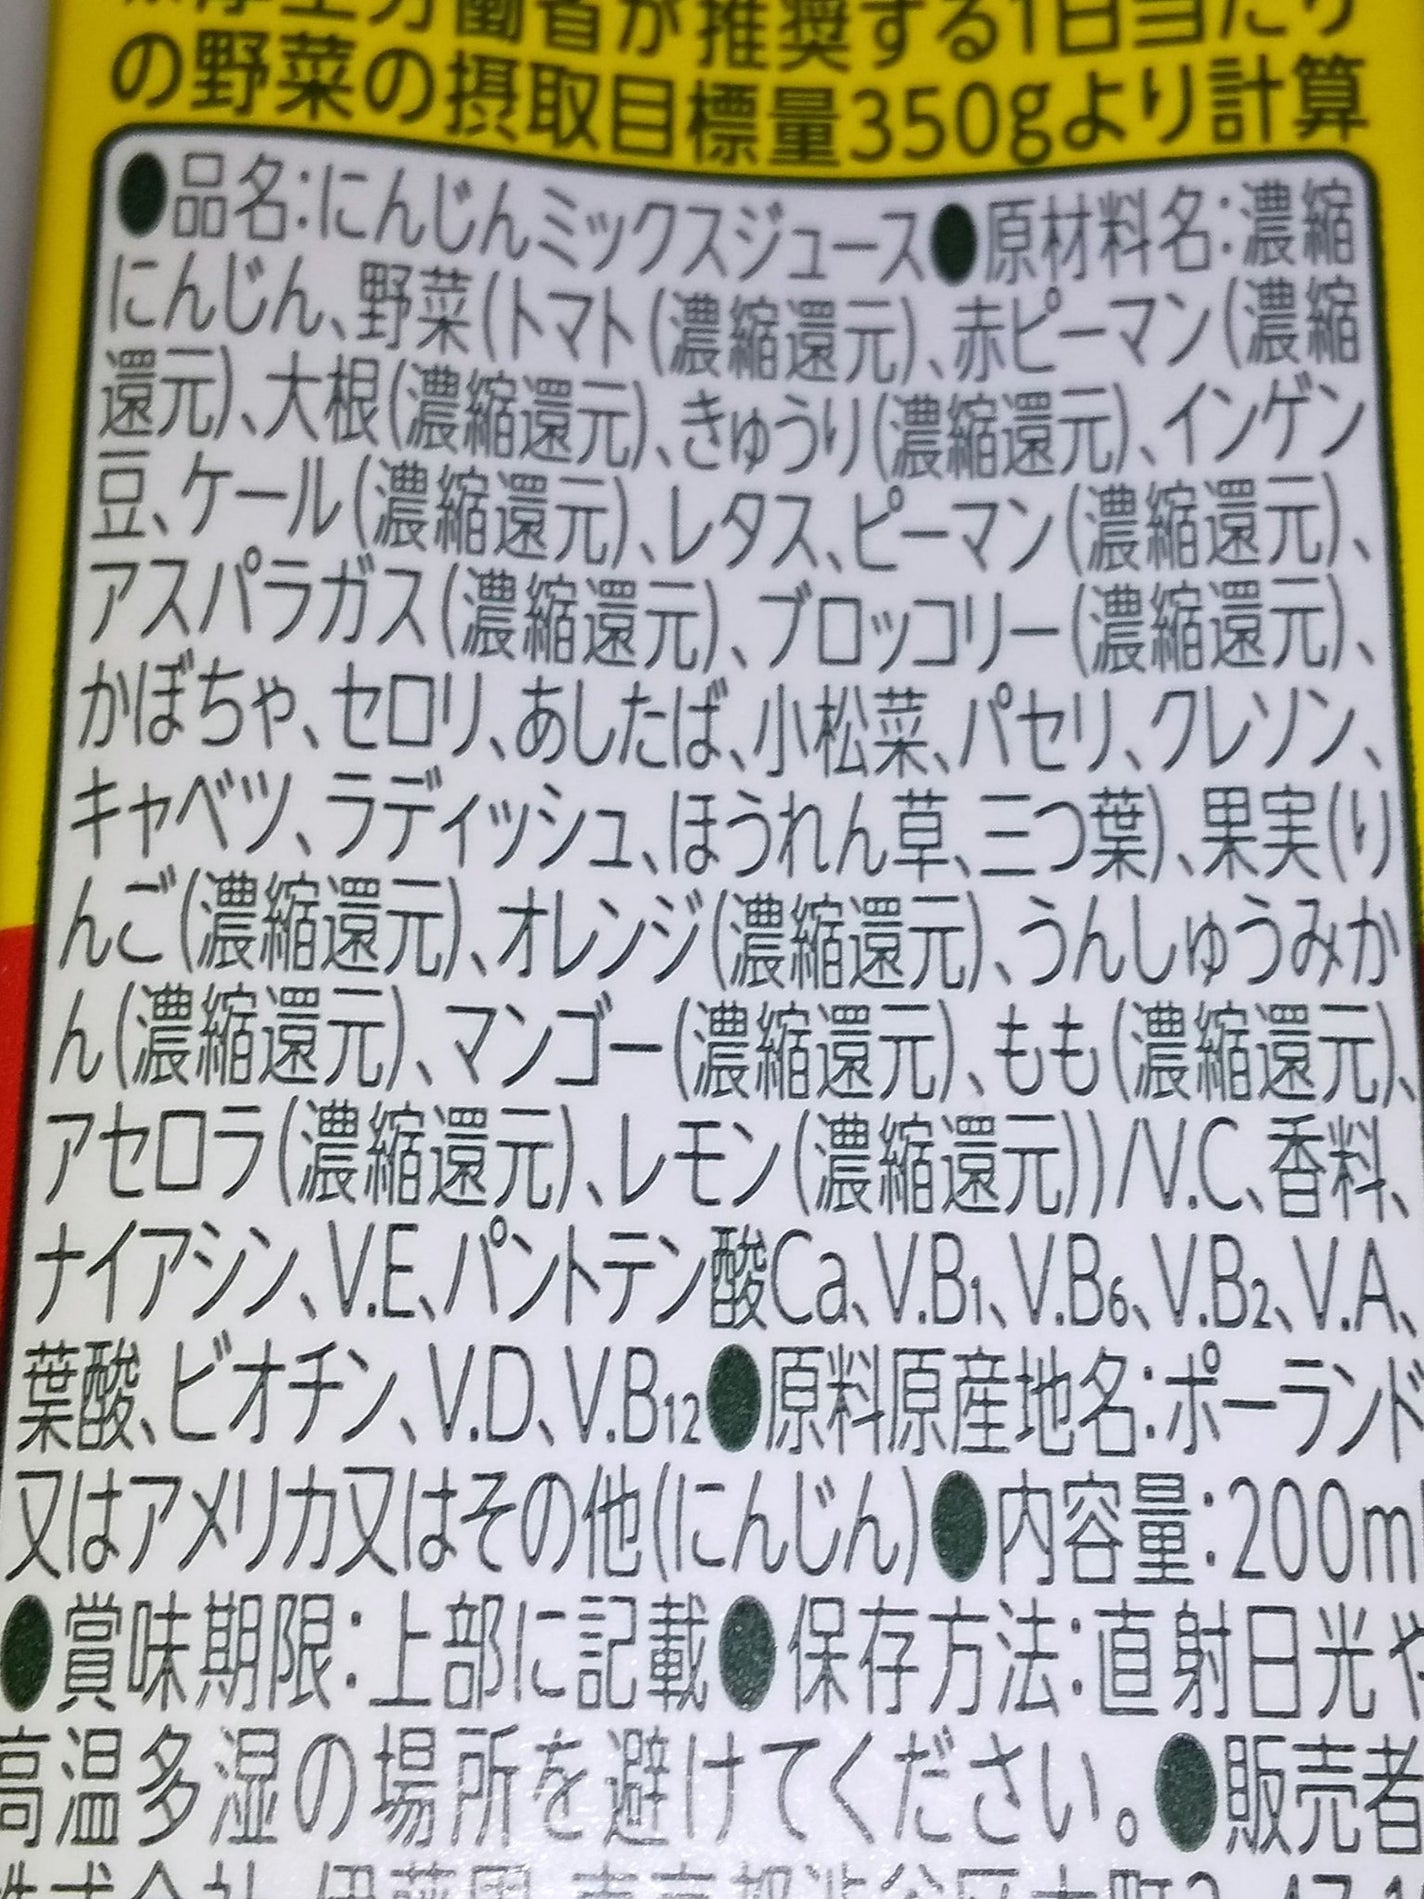 厚生労働省が推奨する1日当たり
の野菜の摂取目標量350gより計算
●品名:にんじんミックスジュース●原材料名:濃縮
にんじん、野菜(トマト(濃縮還元)、赤ピーマン(濃縮
還元)、大根(濃縮還元)、きゅうり(濃縮還元)、インゲン
豆、ケール(濃縮還元)、レタス、ピーマン(濃縮還元)、
アスパラガス(濃縮還元)、ブロッコリー(濃縮還元)、
かぼちゃ、セロリ、あしたば、小松菜、パセリ、クレソン、
キャベツ、ラディッシュ、ほうれん草、三つ葉)、果実(り
んご(濃縮還元)、オレンジ(濃縮還元)、うんしゅうみか
ん(濃縮還元)、マンゴー(濃縮還元)、もも(濃縮還元)、
アセロラ(濃縮還元)、レモン(濃縮還元))/V.C、香料、
ナイアシン、V.E、パントテン酸Ca、V.B₁、V.B₆、V.B₂、V.A、
葉酸、ビオチン、V.D、V.B₁₂●原料原産地名:ポーランド
又はアメリカ又はその他(にんじん)●内容量:200m
●賞味期限:上部に記載●保存方法:直射日光や
高温多湿の場所を避けてください。●販売者
株式会社 伊藤園 東京都渋谷区本町3-47-1